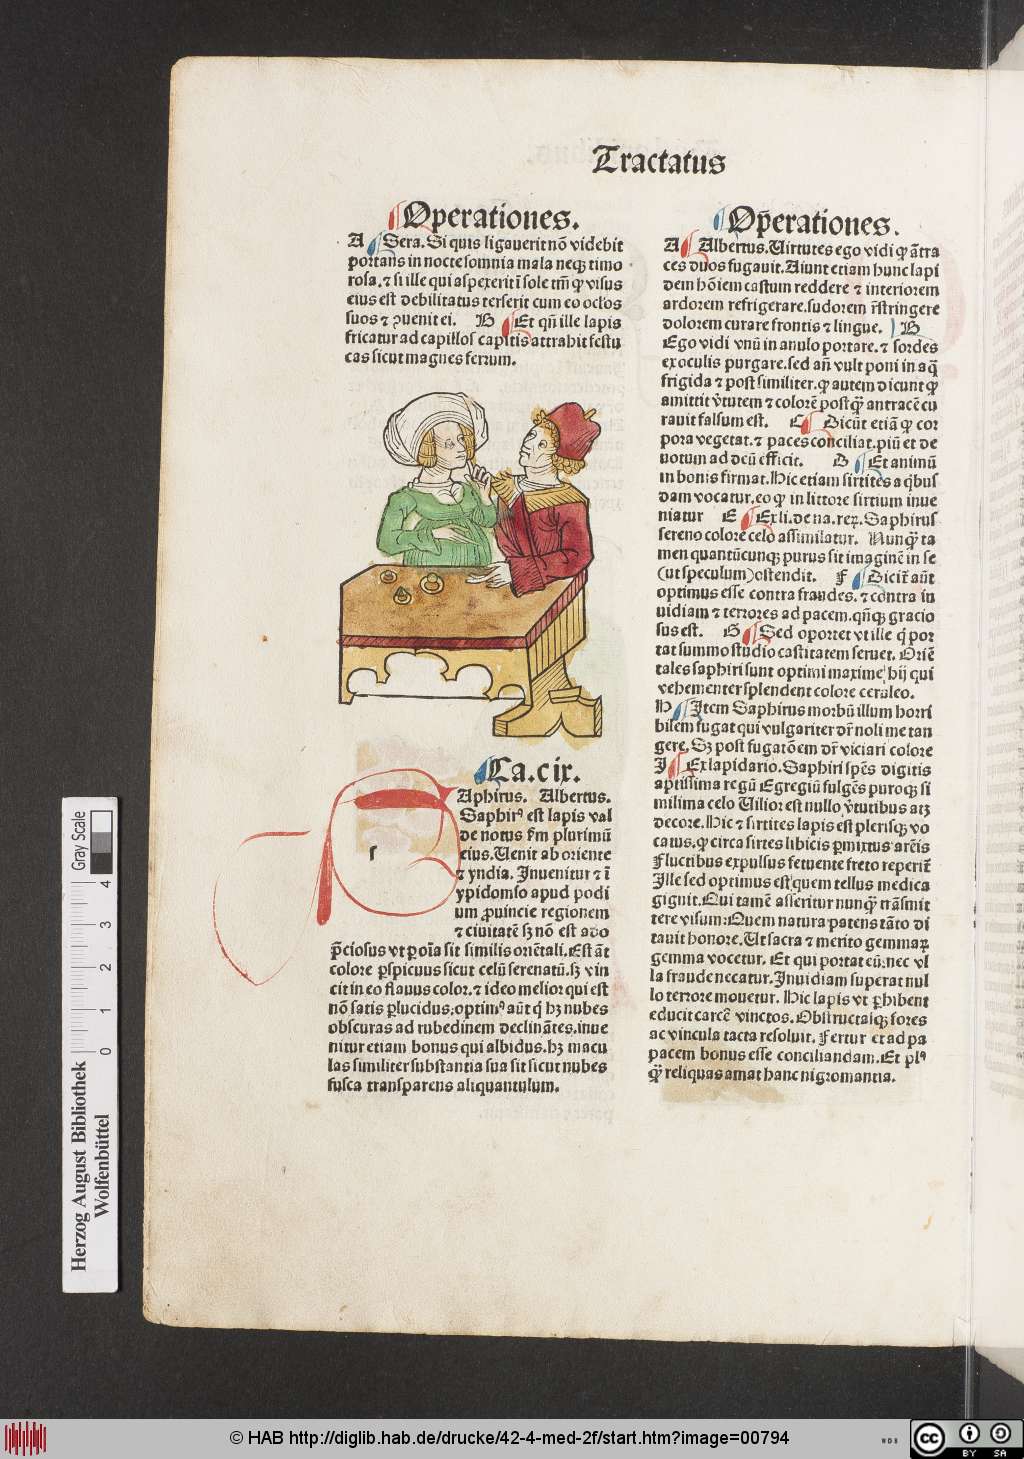 Tractatus
Operationes.
A Sera. Si quis ligauerit nō videbit
portans in nocte somnia mala neqꝫ timo
rosa. ⁊ si ille qui aspexerit ī sole tm̄ ꝙ visus
eius est debilitatus terserit cum eo oclos
suos ⁊ ꝯuenit ei. B Et qn̄ ille lapis
fricatur ad capillos capitis attrahit festu
cas sicut magnes ferrum.
Ca.cix.
s
Aphirus. Albertus.
Saphirꝰ est lapis val
de notus ẜm plurimū
eius. Uenit ab oriente
⁊ yndia. Inuenitur ⁊ ī
ypidomso apud podi
um ꝓuincie regionem
⁊ ciuitatē sꝫ nō est ado
p̄ciosus vt ꝑoīa sit similis oriētali. Est āt
colore ꝑspicuus sicut celū serenatū. sꝫ vin
cit in eo flauus color. ⁊ ideo melior qui est
nō satis ꝑlucidus: optimꝰ aūt q̇ hꝫ nubes
obscuras ad rubedinem declinātes. inue
nitur etiam bonus qui albidus. hꝫ macu
las similiter substantia sua sit sicut nubes
fusca transparens aliquantulum.
Oꝑerationes.
A Albertus. Uirtutes ego vidi ꝙ ātra
ces duos fugauit. Aiunt etiam hunc lapi
dem hōiem castum reddere ⁊ interiorem
ardorem refrigerare. sudorem r̄stringere
dolorem curare frontis ⁊ lingue. B
Ego vidi vnū in anulo portare. ⁊ sordes
ex oculis purgare. sed an̄ vult poni in aq̄
frigida ⁊ post similiter. ꝙ autem dicunt ꝙ
amittit v̓tutem ⁊ colorē postꝙ̄ antracē cu
rauit falsum est. C Dicūt etiā ꝙ cor
pora vegetat. ⁊ paces conciliat. piū et de
uotum ad deū efficit. D Et animū
in bonis firmat. Hic etiam sirtites a q̇bus
dam vocatur. eo ꝙ in littore sirtium inue
niatur E Ex li. de na. reꝝ. Saphirus
sereno colore celo assimilatur. Nunꝙ̄ ta
men quantūcunqꝫ purus sit imaginē in se
(ut speculum) ostendit. F Dicit̄ aūt
optimus esse contra fraudes. ⁊ contra in
uidiam ⁊ terrores ad pacem. qn̄qꝫ gracio
sus est. G Sed oportet vt ille q̇ por
tat summo studio castitatem seruet. Oriē
tales saphiri sunt optimi maxime hij qui
vehementer splendent colore ceruleo.
H Item Saphirus morbū illum horri
bilem fugat qui vulgariter dr̄ noli me tan
gere. Sꝫ post fugatōem dr̄ viciari colore
I Ex lapidario. Saphiri spēs digitis
aptissima regū Egregiū fulgēs puroqꝫ si
milima celo Uilior est nullo v̓tutibus atqꝫ
decore. Hic ⁊ sirtites lapis est plerisqꝫ vo
catus. ꝙ circa sirtes libicis ꝑmixtus arēis
Fluctibus expulsus feruente freto reperit̄
Ille sed optimus est quem tellus medica
gignit. Qui tamē asseritur nunꝙ̄ trāsmit
tere visum: Quem natura potens tāto di
tauit honore. Ut sacra ⁊ merito gemmaꝝ
gemma vocetur. Et qui portat eū: nec vl
la fraude necatur. Inuidiam superat nul
lo terrore mouetur. Hic lapis vt ꝑhibent
educit carcē vinctos. Obstructasqꝫ fores
ac vincula tacta resoluit. Fertur et ad pa
pacem bonus esse conciliandam. Et plꝰ
ꝙ̄ reliquas amat hanc nigromantia.
Gray Scale
0 1 2 3 4
Herzog August Bibliothek
Wolfenbüttel
© HAB http://diglib.hab.de/drucke/42-4-med-2f/start.htm?image=00794
WDB
cc BY SA